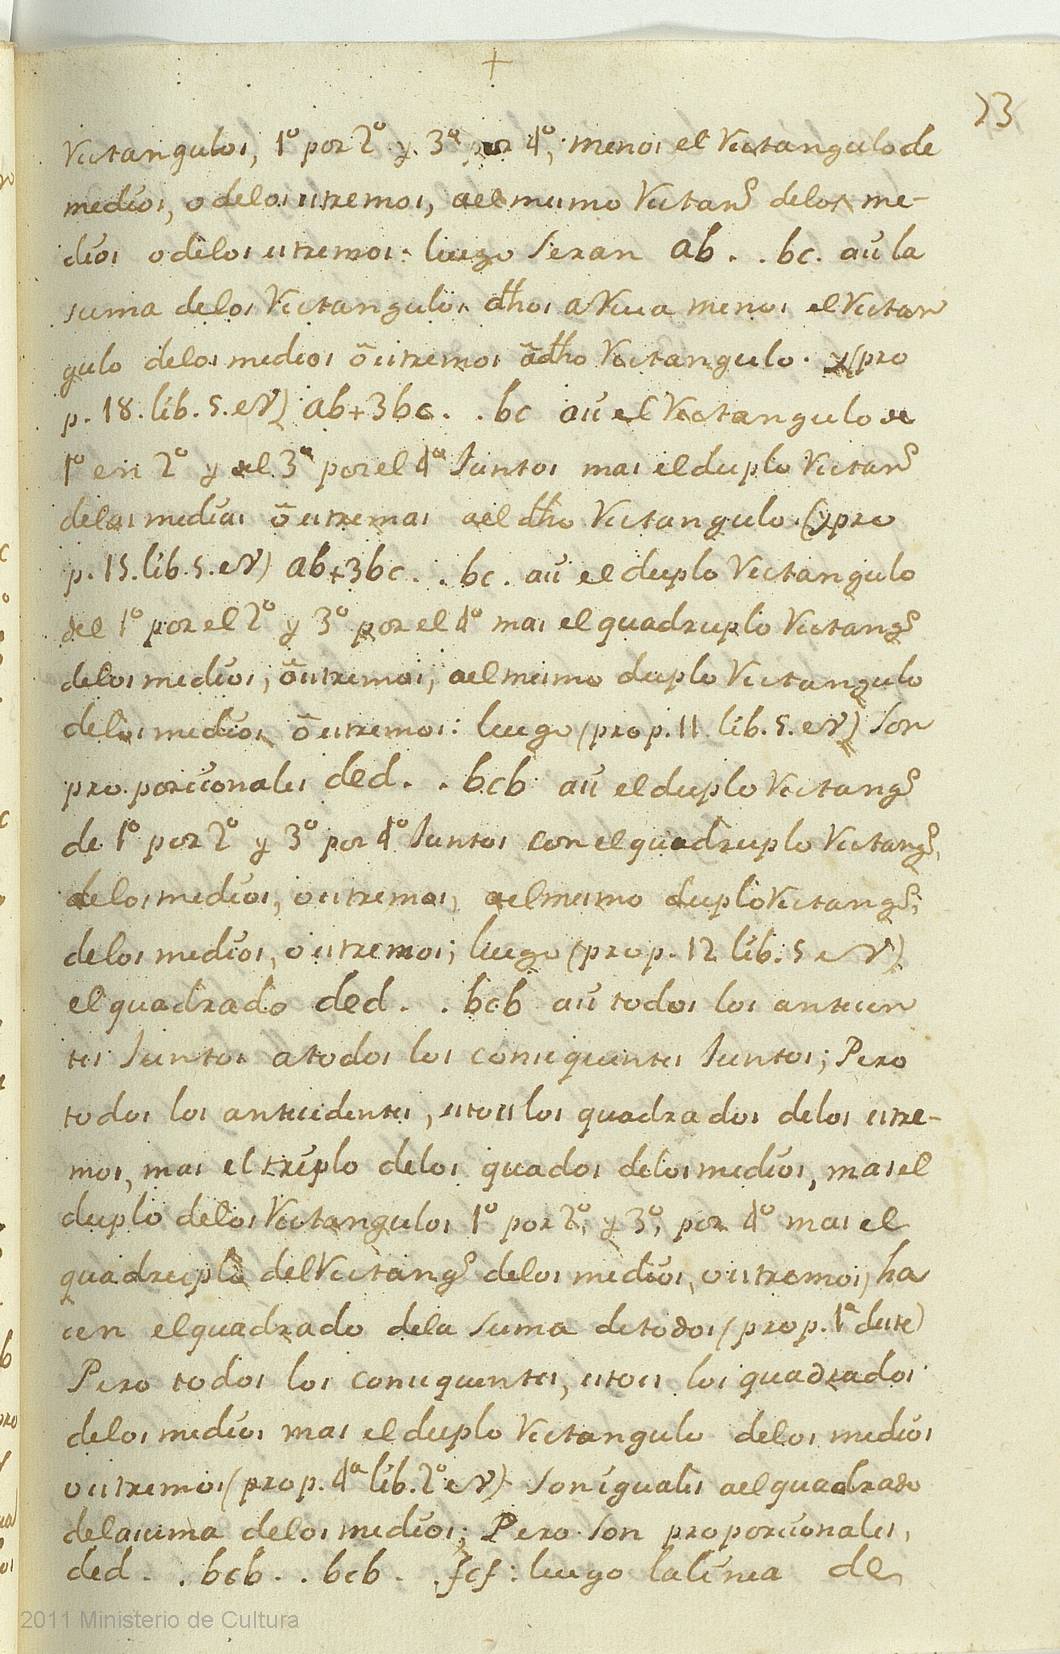 +
23
Rectangulos, 1º por 2º y 3º por 4º, menos el Rectangulo de
medios, o delos estremos, ael mismo Rectang.º delos me-
dios o delos estremos: luego seran ab . . bc. asi la
suma delos Rectangulos dhos a menos el Rectan
gulo delos medios ò estremos à dho Rectangulo. y (pro
p. 18. lib. 5. eV) ab+3bc . . bc asi el Rectangulo de
1º en 2º y el 3º por el 4º Juntos mas el duplo Rectang.º
delos medios ò estremos ael dho Rectangulo. (y pro
p. 15. lib. 5. eV) ab+3bc . . bc. asi el duplo Rectangulo
del 1º por el 2º y 3º por el 4º mas el quadruplo Rectang.º
delos medios, ò estremos, ael mismo duplo Rectangulo
delos medios ò estremos: luego (prop. 11. lib. 5. eV) son
proporcionales ded . . bcb asi el duplo Rectang.º
de 1º por 2º y 3º por 4º Juntos con el quadruplo Rectang.º,
delos medios, o estremos, ael mismo duplo Rectang.º,
delos medios, o estremos; luego (prop. 12 lib. 5 eV)
el quadrado ded . . bcb asi todos los anteceden
tes Juntos a todos los consequentes Juntos; Pero
todos los antecedentes, esto es los quadrados delos estre-
mos, mas el triplo delos quados delos medios, mas el
duplo delos Rectangulos 1º por 2º, y 3º, por 4º mas el
quadruplo del Rectang.º delos medios, o estremos, ha
cen el quadrado dela suma de todos (prop. 1ª deste)
Pero todos los consequentes, esto es los quadrados
delos medios mas el duplo Rectangulo delos medios
o estremos (prop. 4ª lib. 2º eV) son iguales ael quadrado
dela suma delos medios; Pero son proporcionales,
ded . . bcb . . bcb . . fcf: luego la linea de
2011 Ministerio de Cultura